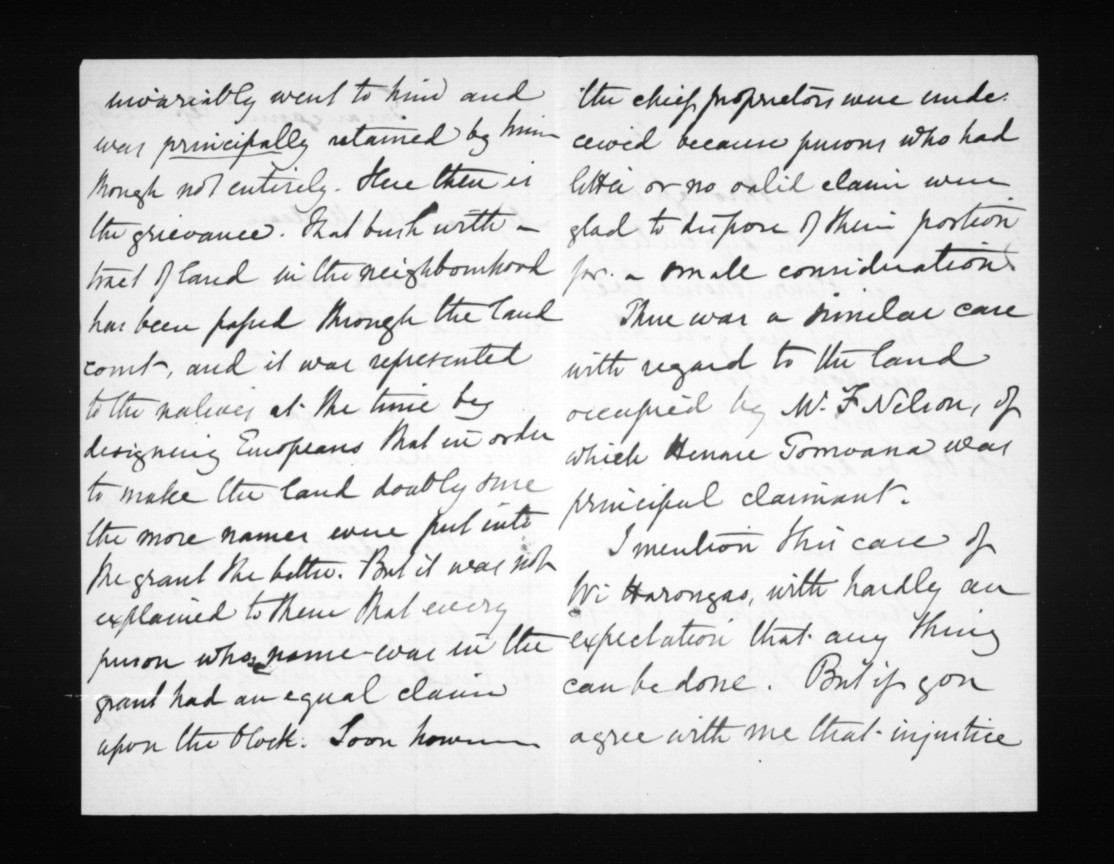 invariably went to him and
was principally retained by him
though not entirely. Here then is
the grievance. That bush with a
tract of land in the neighbourhood
has been passed through the land
court, and it was represented
to the natives at the time by
designing Europeans that in order
to make the land doubly sure
the more names were put into
the grant the better. But it was not
explained to them that every
person whose name was in the
grant had an equal claim
upon the block. Soon however
the chief proprietors were unde-
ceived because persons who had
little or no valid claim were
glad to dispose of their portion
for a small consideration
There was a similar case
with regard to the land
occupied by Mr. F Nelson, of
which Henare Tomoana was
principal claimant.
I mention this case of
Wi Harongas, with hardly an
expectation that any thing
can be done. But if you
agree with me that injustice